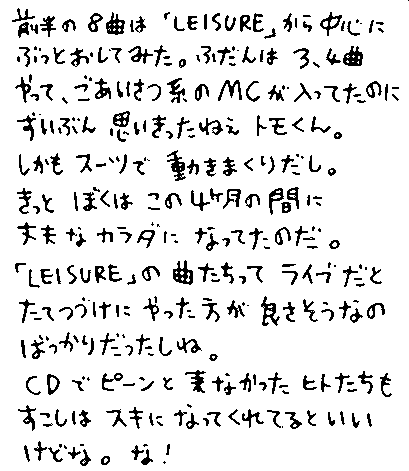 前半の8曲は「LEISURE」から中心に
ぶっとおしてみた。ふだんは3、4曲
やって、ごあいさつ系のMCが入ってたのに
ずいぶん思いきったねぇトモくん。
しかもスーツで動きまくりだし。
きっとぼくはこの4ヶ月の間に
丈夫なカラダになってたのだ。
「LEISURE」の曲たちってライブだと
たてつづけにやった方が良さそうなの
ばっかりだったしね。
CDでピーンと来なかったヒトたちも
すこしはスキになってくれてるといい
けどな。な!